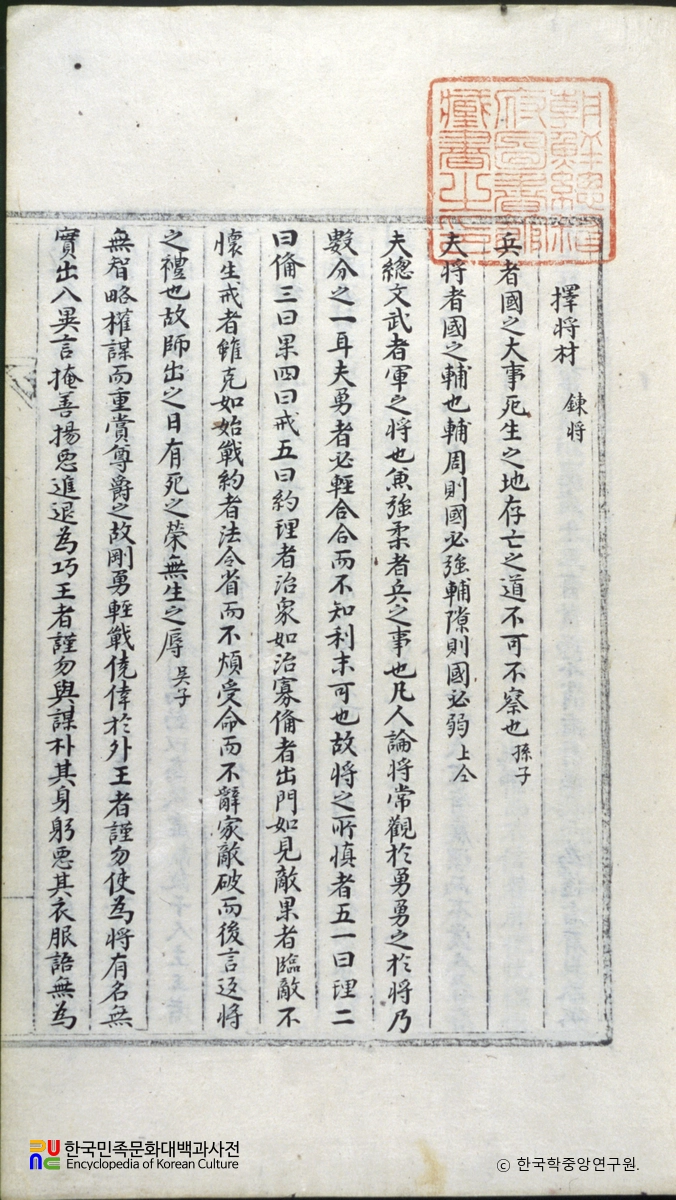 朝鮮總督
府圖書館
藏書之印
擇將材 鍊將
兵者國之大事死生之地存亡之道不可不察也 孫子
夫將者國之輔也輔周則國必強輔隙則國必弱 上仝
夫總文武者軍之將也兼強柔者兵之事也凡人論將常觀於勇勇之於將乃
數分之一耳夫勇者必輕合合而不知利末可也故將之所慎者五一曰理二
曰俻三曰果四曰戒五曰約理者治衆如治寡俻者出門如見敵果者臨敵不
懷生戒者雖克如始戰約者法令省而不煩受命而不辭家敵破而後言返將
之禮也故師出之日有死之榮無生之辱 吳子
無智略權謀而重賞尊爵之故剛勇輕戰僥倖於外王者謹勿使為將有名無
實出入異言掩善揚惡進退為巧王者謹勿與謀朴其身躬惡其衣服語無為
한국민족문화대백과사전
Encyclopedia of Korean Culture
© 한국학중앙연구원.